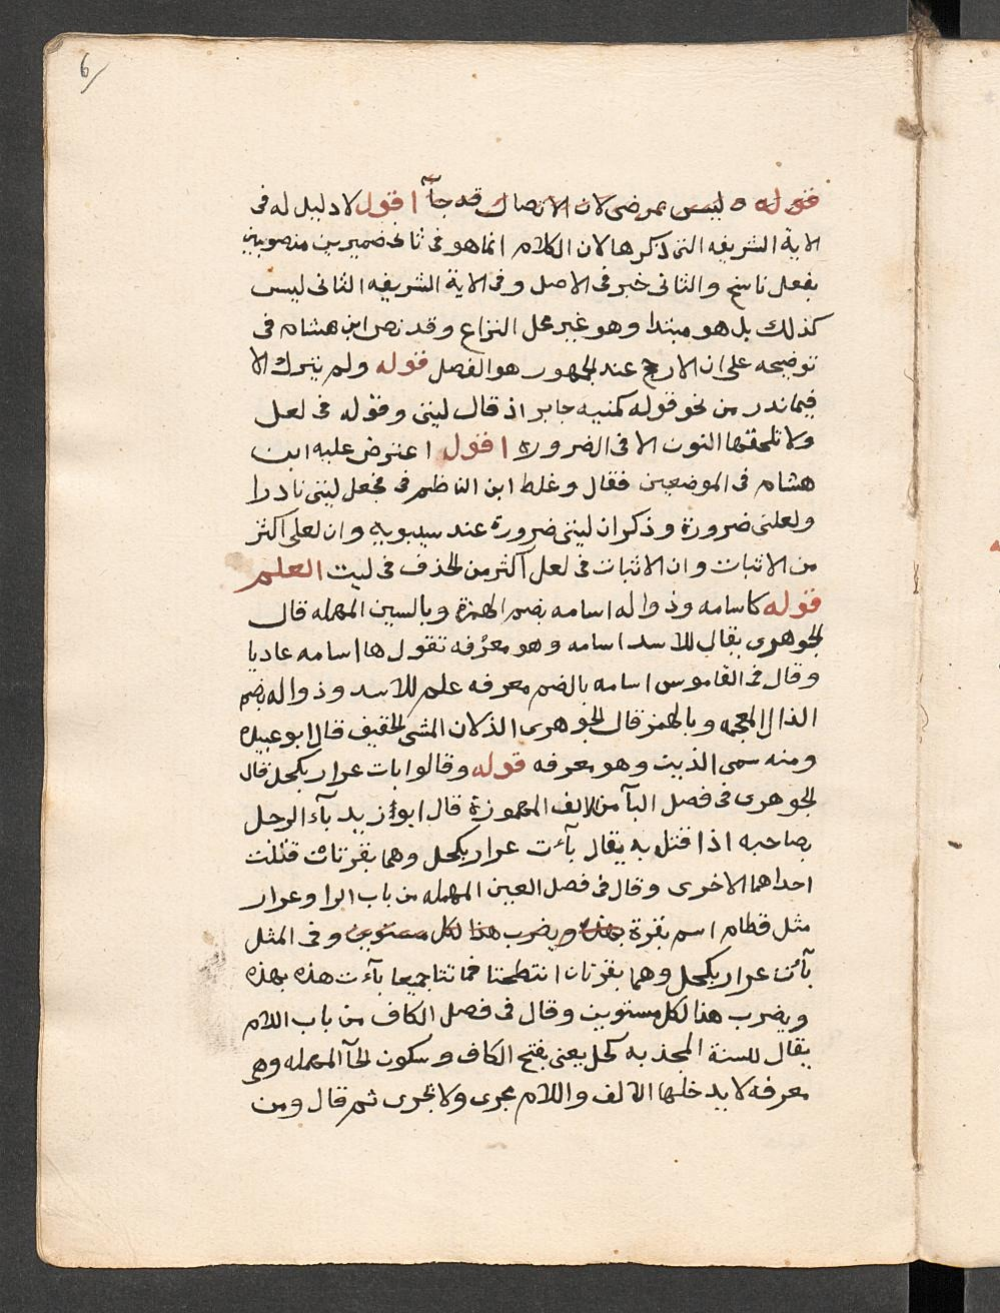 6
قوله وليس بمرضى لان الاتصال قد جآء اقول لا دليل له فى
الاية الشريفه التى ذكرها لان الكلام انما هو فى ثانى ضميرين منصوبين
بفعل ناسخ والثانى خبر فى الاصل وفى الاية الشريفه الثانى ليس
كذلك بل هو مبتدا وهو غير محل النزاع وقد نص ابن هشام فى
توضيحه على ان الارجح عند الجمهور هو الفصل قوله ولم يترك الا
فيما ندر من نحو قوله كمنيه جابر اذ قال ليتى وقوله فى لعل
ولا تلحقها النون الا فى الضرورة اقول اعترض عليه ابن
هشام فى الموضعين فقال وغلط ابن الناظم فى فجعل ليتى نادرا
ولعلنى ضرورة وذكر ان ليتى ضرورة عند سيبويه وان لعلى اكثر
من الاثبات وان الاثبات فى لعل اكثر من الحذف فى ليت العلم
قوله كاسامه وذواله اسامه بضم الهمزة وبالسين المهمله قال
الجوهرى يقال للاسد اسامه وهو معرفه تقول هاا سامه عاديا
وقال فى القاموس اسامه بالضم معرفه علم للاسد وذواله بضم
الذال المعجمه وبالهمز قال الجوهرى الذالان المشى الخفيف قال ابو عبيده
ومنه سمى الذيب وهو معرفه قوله وقالوا باءت عرار بكحل قال
الجوهرى فى فصل البآ من الالف المهموزة قال ابو زيد بآء الرجل
بصاحبه اذا قتل به يقال بآءت عرار بكحل وهما بقرتان قتلت
احداهما الاخرى وقال فى فصل العين المهمله من باب الرا وعرار
مثل قطام اسم بقرة ويضرب هذا لكل مستويين وفى المثل
بآءت عرار بكحل وهما بقرتان انتطحتا فماتتا جميعا بآءت هذه بهذه
ويضرب هذا لكل مستويين وقال فى فصل الكاف من باب اللام
يقال للسنة المجدبه كحل يعنى بفتح الكاف وسكون الحآ المهمله وهى
معرفه لا يدخلها الالف واللام تجرى ولا تجرى ثم قال ومن